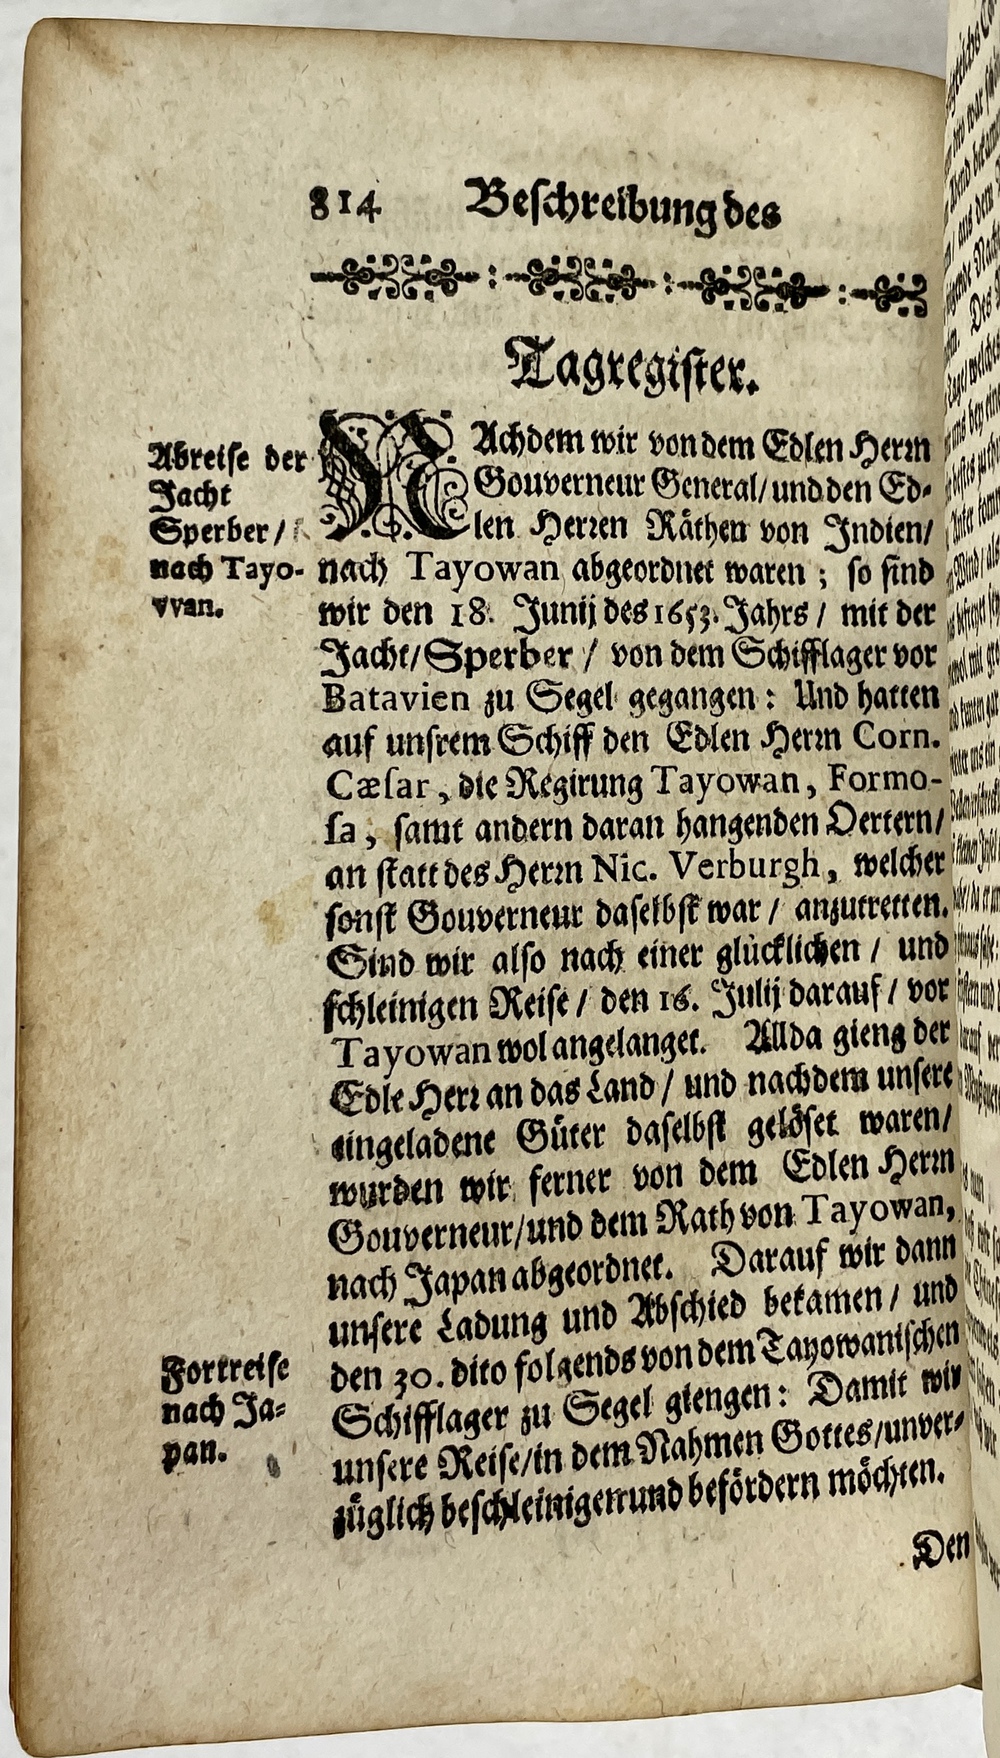 814 Beschreibung des
Tagregister.
Abreise der
Jacht
Sperber /
nach Tayo-
vvan.
NAchdem wir von dem Edlen Herꝛn
Gouverneur General / und den Ed-
len Herꝛen Räthen von Indien /
nach Tayowan abgeordnet waren ; so sind
wir den 18. Junij des 1653. Jahrs / mit der
Jacht / Sperber / von dem Schifflager vor
Batavien zu Segel gegangen : Und hatten
auf unsrem Schiff den Edlen Herꝛn Corn.
Cæſar , die Regirung Tayowan , Formo-
ſa , samt andern daran hangenden Oertern /
an statt des Herꝛn Nic. Verburgh , welcher
sonst Gouverneur daselbst war / anzutretten.
Sind wir also nach einer glücklichen / und
schleinigen Reise / den 16. Julij darauf / vor
Tayowan wol angelanget. Allda gieng der
Edle Herꝛ an das Land / und nachdem unsere
eingeladene Güter daselbst gelöset waren /
wurden wir ferner von dem Edlen Herꝛn
Gouverneur / und dem Rath von Tayowan ,
nach Japan abgeordnet. Darauf wir dann
unsere Ladung und Abschied bekamen / und
den 30. dito folgends von dem Tayowanischen
Schifflager zu Segel giengen : Damit wir
unsere Reise / in dem Nahmen Gottes / unver-
züglich beschleinigen und befördern möchten.
Fortreise
nach Ja-
pan.
Den